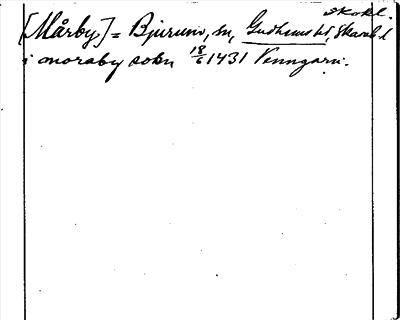 Skokl.
[Mårby] = Bjurum, sn, Gudhems hd, Skarab. l
i moraby sokn 18/6 1431 Venngarn.